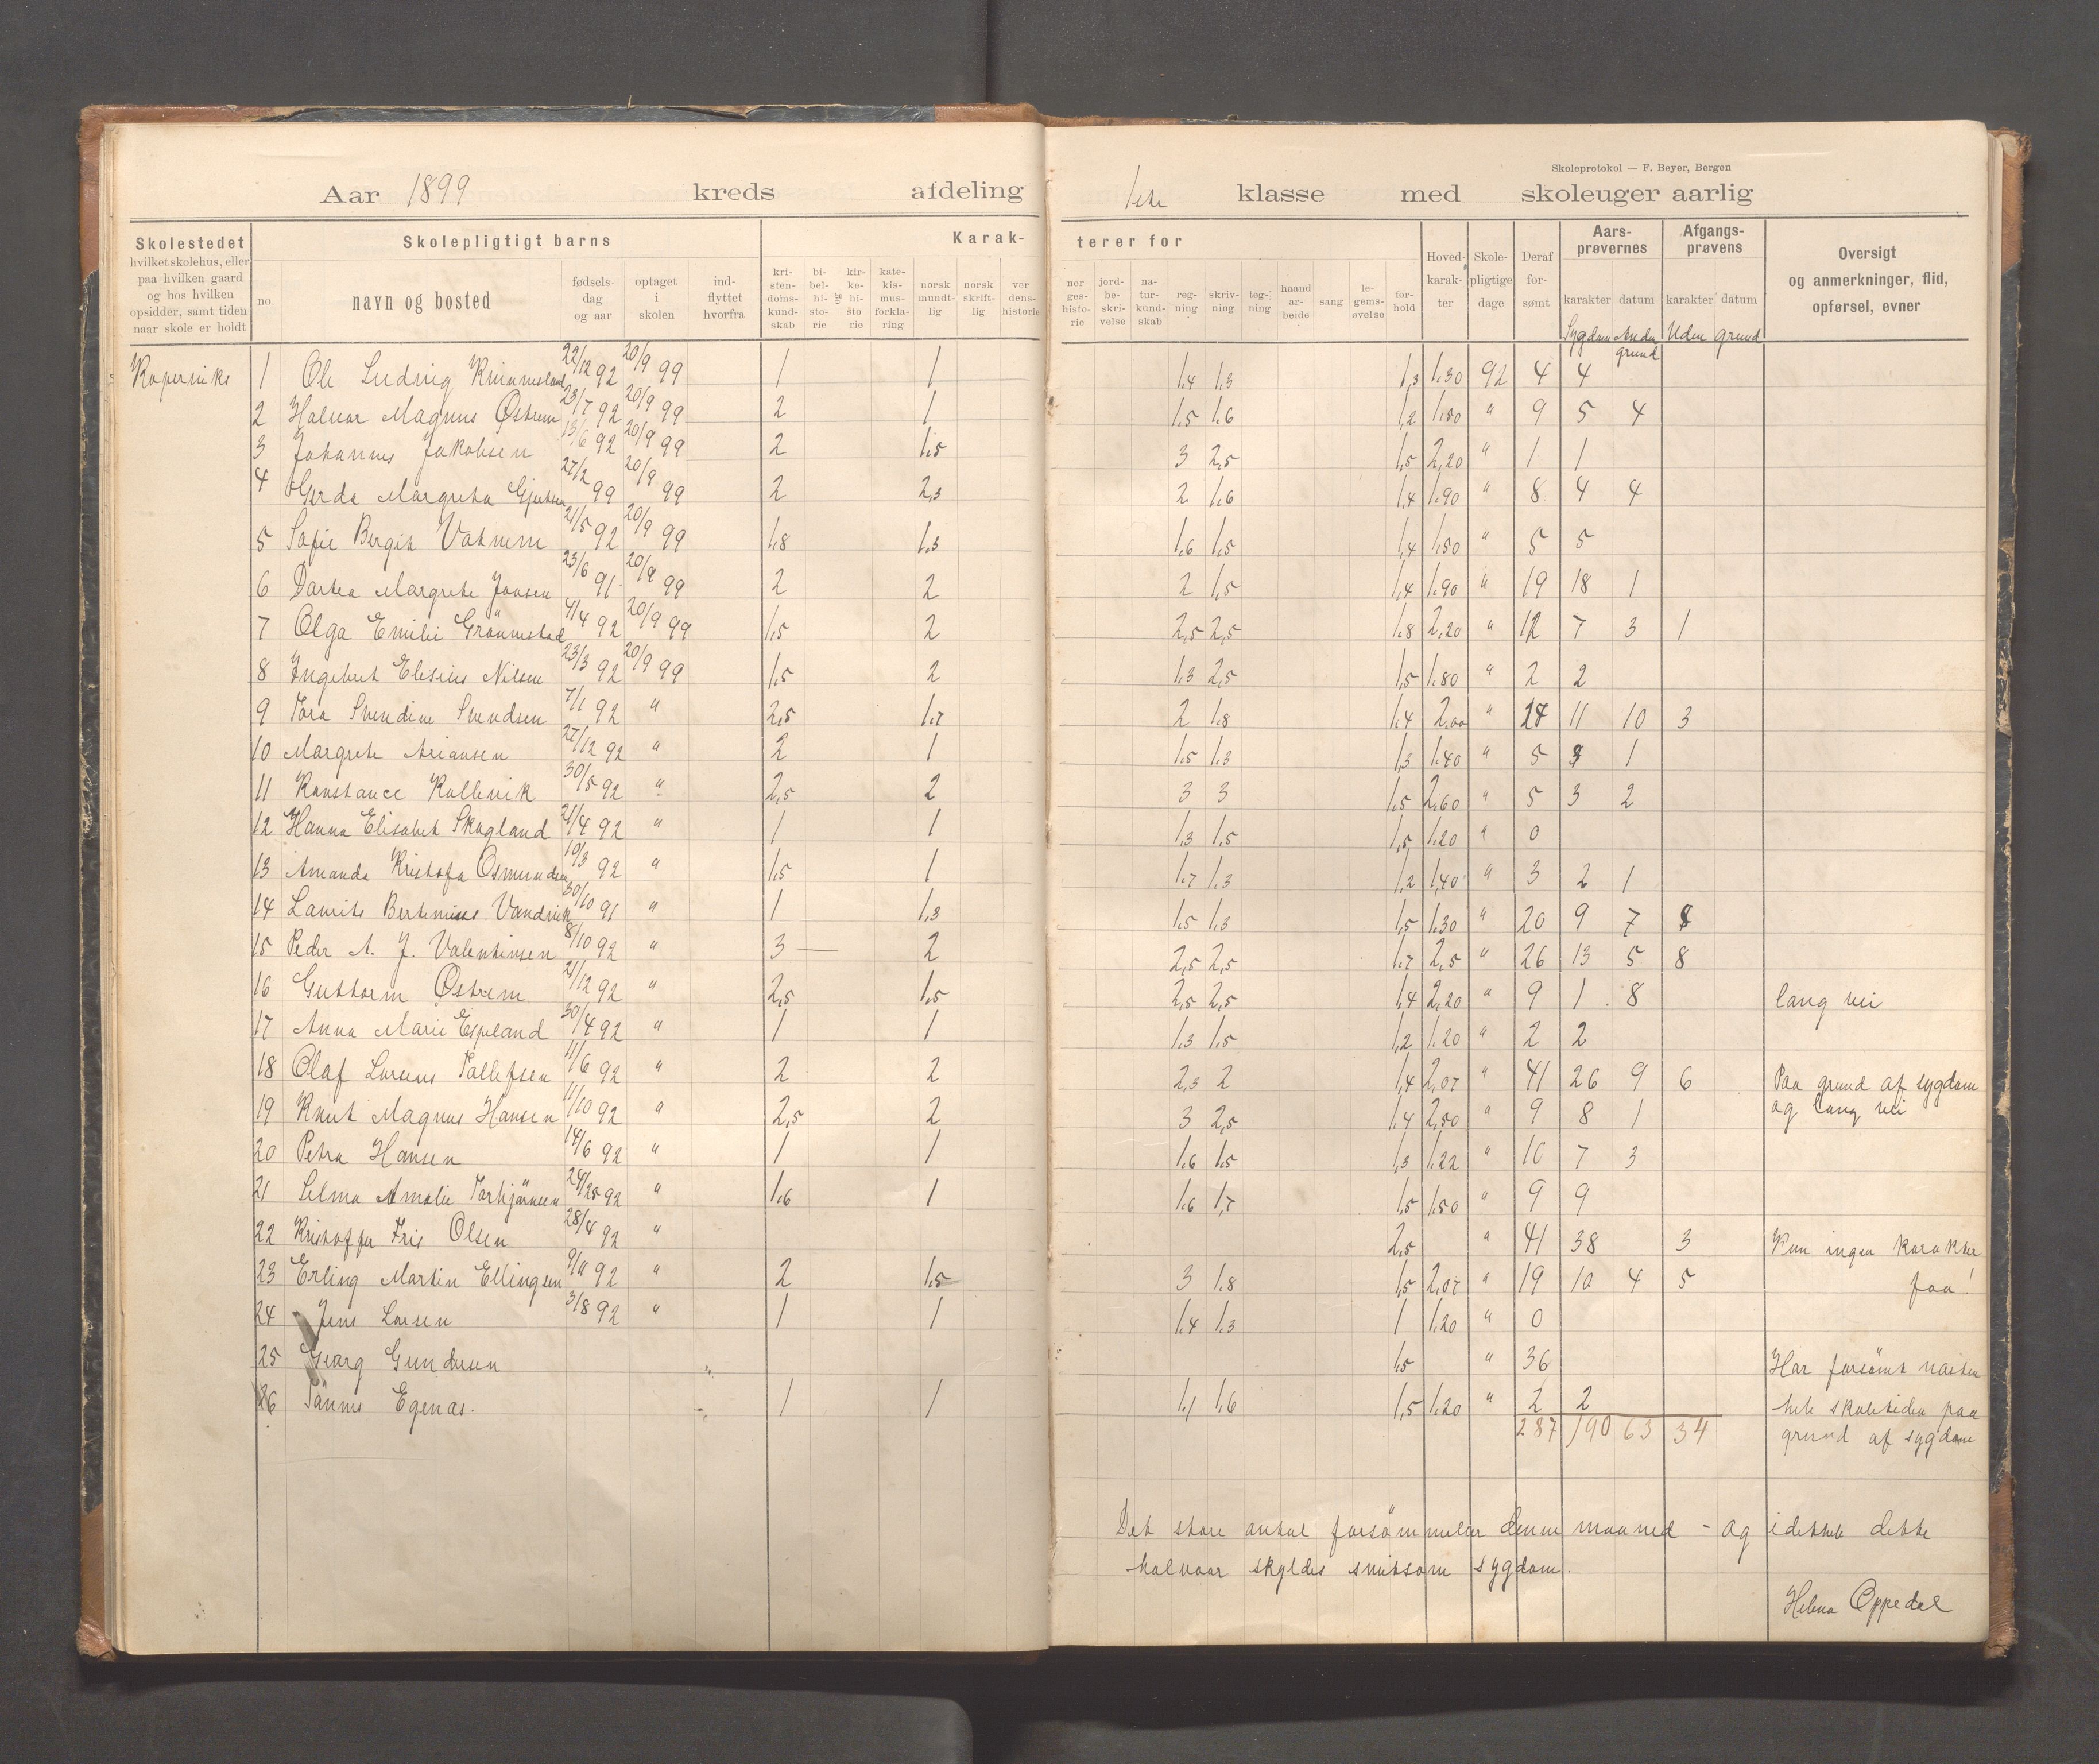 Skoleprotokol — F. Beyer, Bergen
Aar 1899 kreds afdeling 1ste klasse med skoleuger aarlig
Skolestedet
hvilket skolehus, eller
paa hvilken gaard
og hos hvilken
opsidder, samt tiden
naar skole er holdt
Skolepligtigt barns
no.
navn og bosted
fødsels-
dag
og aar
optaget
i
skolen
ind-
flyttet
hvorfra
Karak-
terer for
kri-
sten-
doms-
kund-
skab
bi-
bel-
hi-
sto-
rie
og
kir-
ke-
hi-
sto
rie
kate-
kis-
mus-
forkla-
ring
norsk
mundt-
lig
norsk
skrift-
lig
ver
dens-
historie
nor
ges-
histo-
rie
jord-
be-
skri-
velse
na-
tur-
kund-
skab
reg-
ning
skriv-
ning
teg-
ning
haand
ar-
beide
sang
le-
gems-
øvelse
for-
hold
Hoved-
karak-
ter
Skole-
pligtige
dage
Deraf
for-
sømt
Aars-
prøvernes
karakter datum
Afgangs-
prøvens
karakter datum
Oversigt
og anmerkninger, flid,
opførsel, evner
Sygdom Anden grund Uden grund
Kopervik
1 Ole Ludvig 22/12 92 20/9 99 1 1 1,4 1,3 1,3 1.30 92 4 4
2 Halvor Magnus Østrem 23/7 92 20/9 99 2 1 1,5 1,6 1,2 1.80 " 9 5 4
3 Johannes Jakobsen 13/6 92 20/9 99 2 1,5 3 2,5 1,5 2,20 " 1 1
4 Gerda Margreta 27/2 99 20/9 99 2 2,3 2 1,6 1,4 1.90 " 8 4 4
5 Sofie Bergit Vatnem 21/5 92 20/9 99 1,8 1,3 1,6 1,5 1,4 1.50 " 5 5
6 Dortea Margrete Jonsen 23/6 91 20/9 99 2 2 2 1,5 1,4 1.90 " 19 18 1
7 Olga Emilie Grönnestad 4/4 92 20/9 99 1,5 2 2,5 2,5 1,8 2,20 " 12 7 3 1
8 Ingebret Elesius Nilsen 23/3 92 20/9 99 1,5 2 1,3 2,5 1,5 1.80 " 2 2
9 Tora Svendine Svendsen 7/1 92 " 2,5 1,7 2 1,8 1,4 2,00 " 24 11 10 3
10 Margrete Ariansen 27/12 92 " 2 1 1,5 1,3 1,3 1.40 " 5 1
11 Konstance Kollevik 30/5 92 " 2,5 2 3 3 1,5 2,60 " 5 3 2
12 Hanna Elisabet Skogland 21/4 92 " 1 1 1,3 1,5 1,5 1.20 " 0
13 Amanda Kristofa Osmundsen 10/3 92 " 1,5 1 1,7 1,3 1,2 1,40 " 3 2 1
14 Laurits Bertenius Vandvik 30/10 91 " 1 1,3 1,5 1,3 1,5 1.30 " 20 9 7 8
15 Peder A. J. Valentinsen 8/10 92 " 3 — 2 2,5 2,5 1,7 2,5 " 26 13 5 8
16 Guttorm Østrem 21/12 92 " 2,5 1,5 2,5 2,5 1,4 2,20 " 9 1 8 lang vei
17 Anna Marie Espeland 30/4 92 " 1 1 1,3 1,5 1,2 1.20 " 2 2
18 Olaf Lorens Tollefsen 11/6 92 " 2 2 2,3 2 1,4 2,07 " 41 26 9 6 Paa grund af sygdom
19 Knut Magnus Hansen 11/10 92 " 2,5 2 3 2,5 1,4 2,50 " 9 8 1 og lang vei
20 Petra Hansen 14/6 92 " 1 1 1,6 1,5 1,3 1.22 " 10 7 3
21 Selma Amalie Torbjörnsen 92 " 1,6 1 1,6 1,7 1,5 1.50 " 9 9
22 Kristoffer Fris Olsen 28/4 92 " 2,5 " 41 38 3 Kan ingen karakter
23 Erling Martin Ellingsen 9/11 92 " 2 1,5 3 1,8 1,5 2,07 " 19 10 4 5 faa!
24 Jens Larsen 3/8 92 " 1 1 1,4 1,3 1 1.20 " 0
25 Georg Gundersen 1,5 " 36 Har forsömt næsten
26 Tönnes Egenæs. 1 1 1,1 1,6 1,5 1.20 " 2 2 hele skoletiden paa
287 190 63 34 grund af sygdom
Det store antal forsömmelser denne maaned - og idethele dette
halvaar skyldes smitsom sygdom.
Helena Oppedal